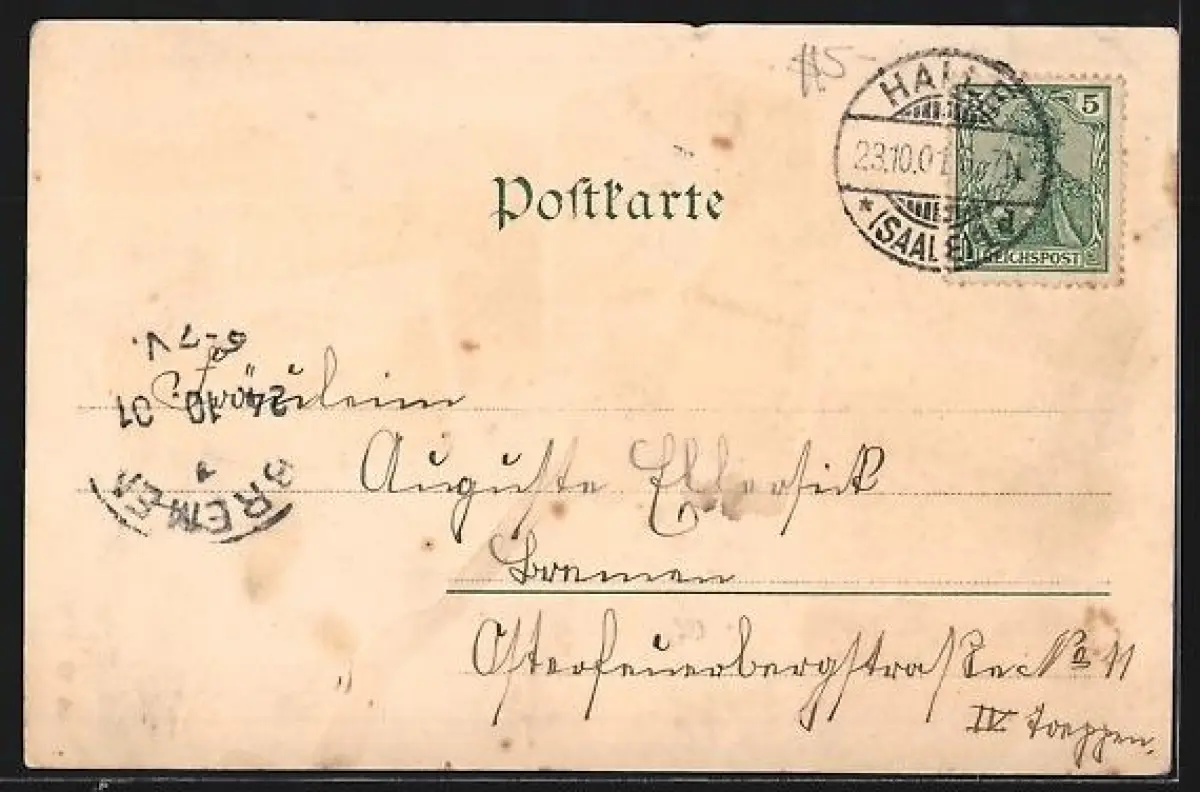 #5-
HALLE
5
23.10.01. 6-7N
* (SAALE)
REICHSPOST
Postkarte
5-7 V.
24 10 01
BREMEN
Fräulein
Auguste Ellersick
Bremen
Osterfeuerbergstraße No 11
IV Treppen.